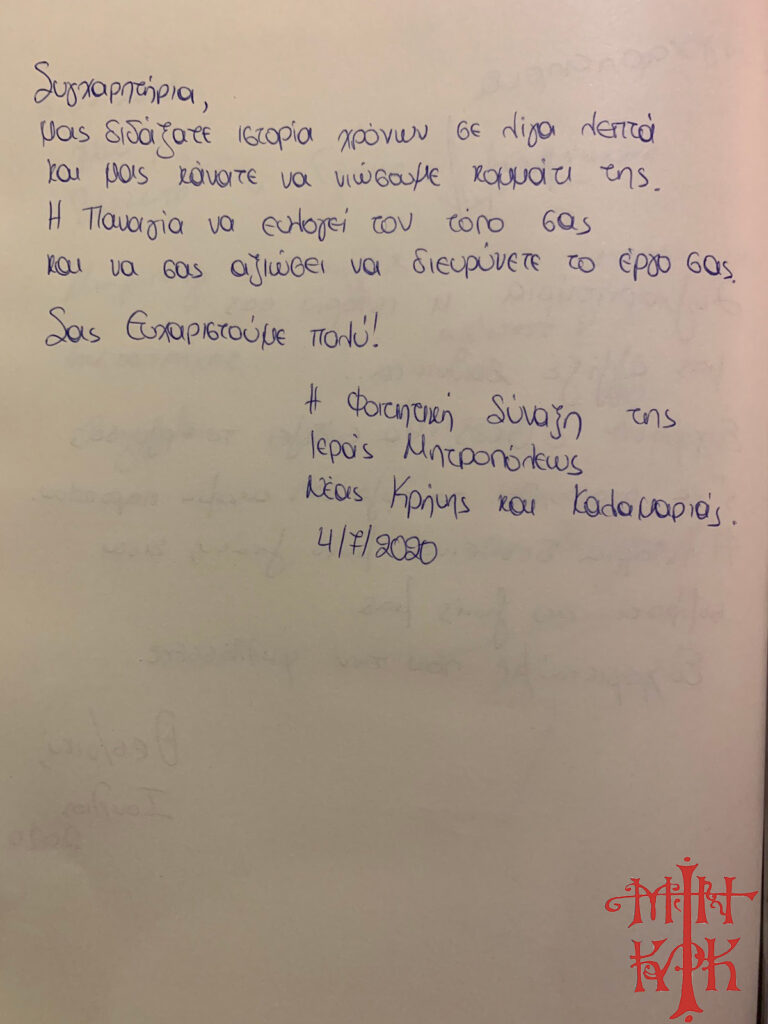 Συγχαρητήρια,
μας διδάξατε ιστορία χρόνων σε λίγα λεπτά
και μας κάνατε να νιώσουμε κομμάτι της.
Η Παναγία να ευλογεί τον τόπο σας
και να σας αξιώσει να διευρύνετε το έργο σας.
Σας Ευχαριστούμε πολύ!
Η Φοιτητική Σύναξη της
Ιεράς Μητροπόλεως
Νέας Κρήνης και Καλαμαριάς.
4/7/2020